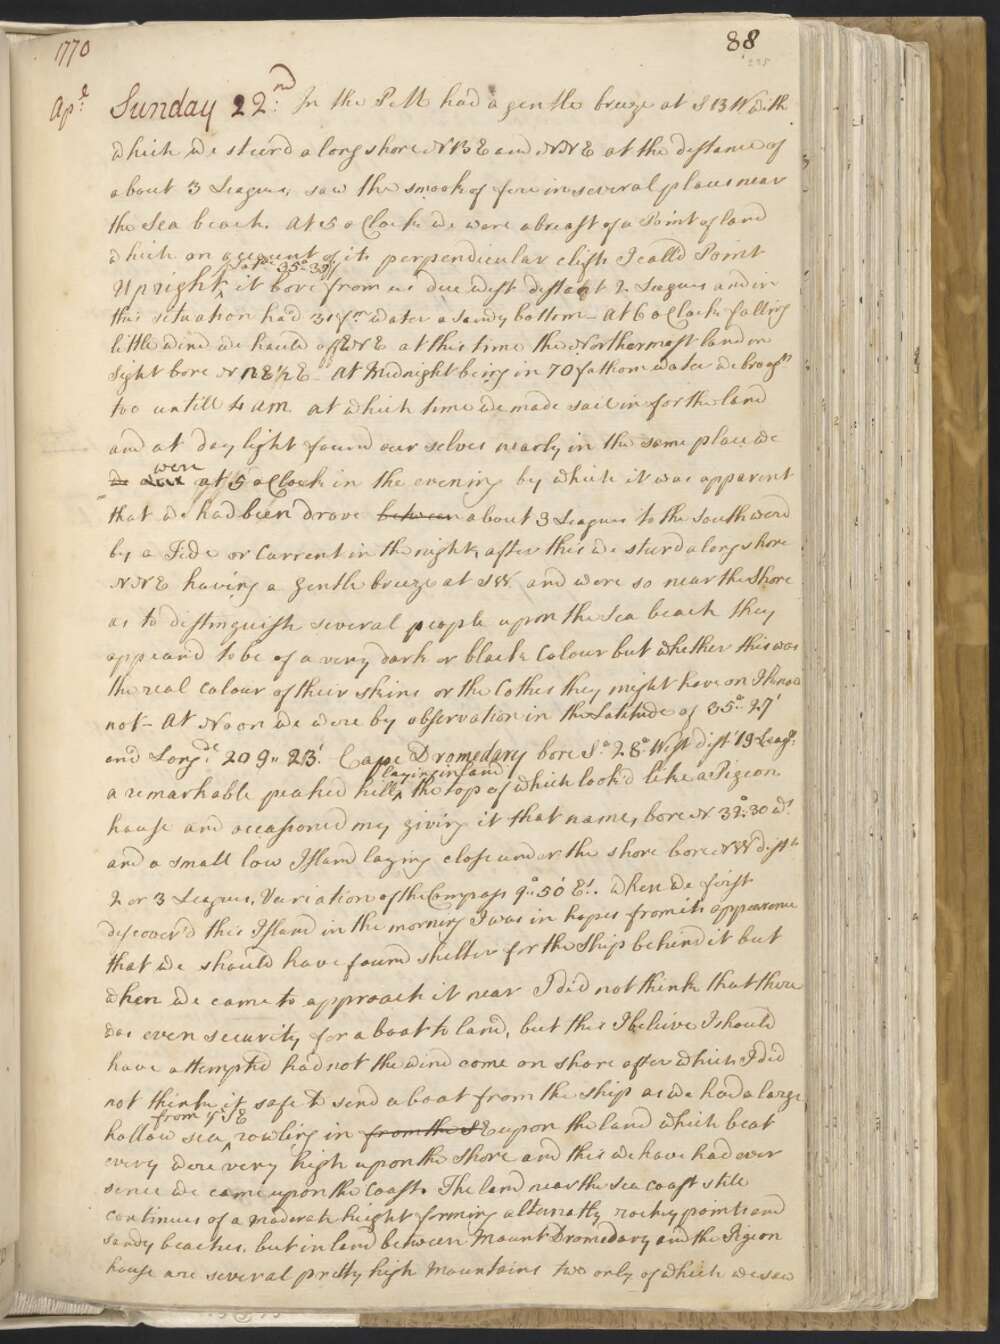 1770
88
Ap.l Sunday 22.nd In the PM had a gentle breeze at SBW with
which we steer'd along shore NBE and NNE at the distance of
about 3 Leagues, saw the smook of fire in several places near
the Sea beach. At 5 oClock we were abreast of a Point of land
which on account of its perpendicular clifts I call'd Point
Lat.de 35°..35'
Upright, it bore from us due west distant 2 Leagues and in
this situation had 31 fm water a sandy bottom - At 6 oClock falling
little wind we hauld off ENE at this time the Northermost land in
sight bore NBE½E - At Midnight being in 70 fathom water we brought
too untill 4 am at which time we made sail in for the land
and at day light found our selves nearly in the same place we
were
at 5 oClock in the evening by which it was apparent
that we had been drove between about 3 Leagues to the southward
by a Tide or Current in the night, after this we steerd along shore
NNE having a gentle breeze at SW. and were so near the Shore
as to distinguish several people upon the Sea beach they
appear'd to be of a very dark or black Colour but whether this was
the real colour of their skins or the Cothes they might have on I know
not - At Noon we were by observation in the Latitude of 35°.. 27'
and Long.de 209..23'. Cape Dromedary bore S° 28° West dist.t 19 Leag.s
laying inland
a remarkable peaked hill the top of which look'd like a Pigeon
house and occasioned my giving it that name, bore N 32°..30 W.t
and a small low Island laying close under the shore bore NW dist.t
2 or 3 Leagues, Variation of the Compass 9°..50' E.t. When we first
discover'd this Island in the morning I was in hopes from its appearence
that we should have found shelter for the Ship behind it but
when we came to approach it near I did not think that there
was even security for a boat to land, but this I believe I should
have attempted had not the wind come on shore after which I did
not think it safe to send a boat from the ship as we had a large
from ye SE
hollow sea rowling in from the SE upon the land which beat
every were very high upon the Shore and this we have had ever
sence we came upon the Coast. The land near the sea coast still
continues of a moderate height forming alternatly rocky points and
sandy beaches, but inland between Mount Dromedary and the Pigeon
house are several pretty high Mountains two only of which we saw